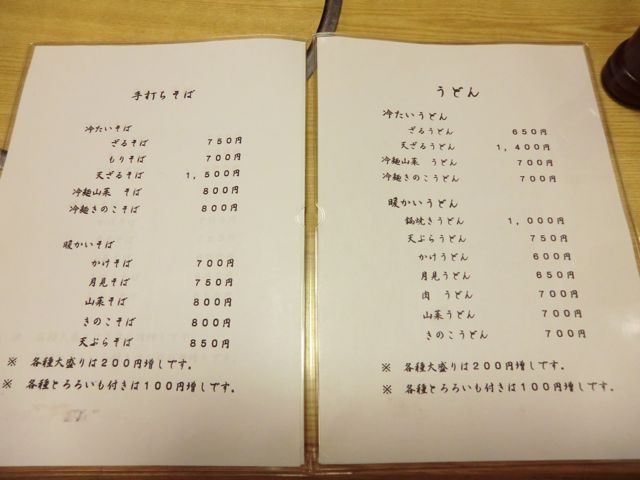 手打ちそば
冷たいそば
ざるそば 750円
もりそば 700円
天ざるそば 1,500円
冷麺山菜 そば 800円
冷麺きのこそば 800円
暖かいそば
かけそば 700円
月見そば 750円
山菜そば 800円
きのこそば 800円
天ぷらそば 850円
※ 各種大盛りは200円増しです。
※ 各種とろろいも付きは100円増しです。
うどん
冷たいうどん
ざるうどん 650円
天ざるうどん 1,400円
冷麺山菜 うどん 700円
冷麺きのこうどん 700円
暖かいうどん
鍋焼きうどん 1,000円
天ぷらうどん 750円
かけうどん 600円
月見うどん 650円
肉 うどん 700円
山菜うどん 700円
きのこうどん 700円
※ 各種大盛りは200円増しです。
※ 各種とろろいも付きは100円増しです。